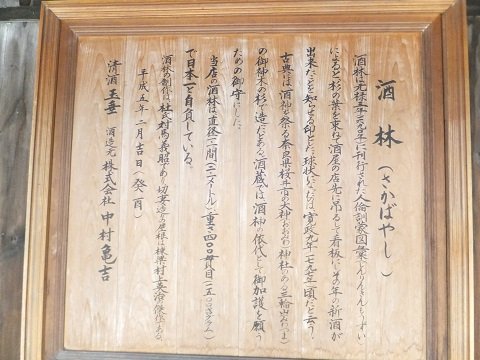 酒林（さかばやし）
酒林は元禄三年（一六九〇年）に刊行された人倫訓蒙図彙（じんりんきんもうずい）
によると、杉の葉を束ね酒屋の店先に吊るして看板にその年の新酒が
出来たことを知らせる印とした。球状になったのは寛政九年（一七九七年）頃だと云う。
古典には酒神を祭る奈良県桜井市の大神（おおみわ）神社のある三輪山（みわやま）
の御神木の杉で造ったとある。酒蔵では酒神の依代として御加護を願う
ための御守にした。
当店の酒林は、直径一間（二メートル）重さ四〇〇貫目（一五〇〇キログラム）
で日本一と自負している。
酒林の制作は杜氏対馬義昭であり切妻造りの屋根は棟梁村上英治の傑作である。
平成五年二月吉日（癸酉）
清酒玉垂 酒造元 株式会社 中村亀吉